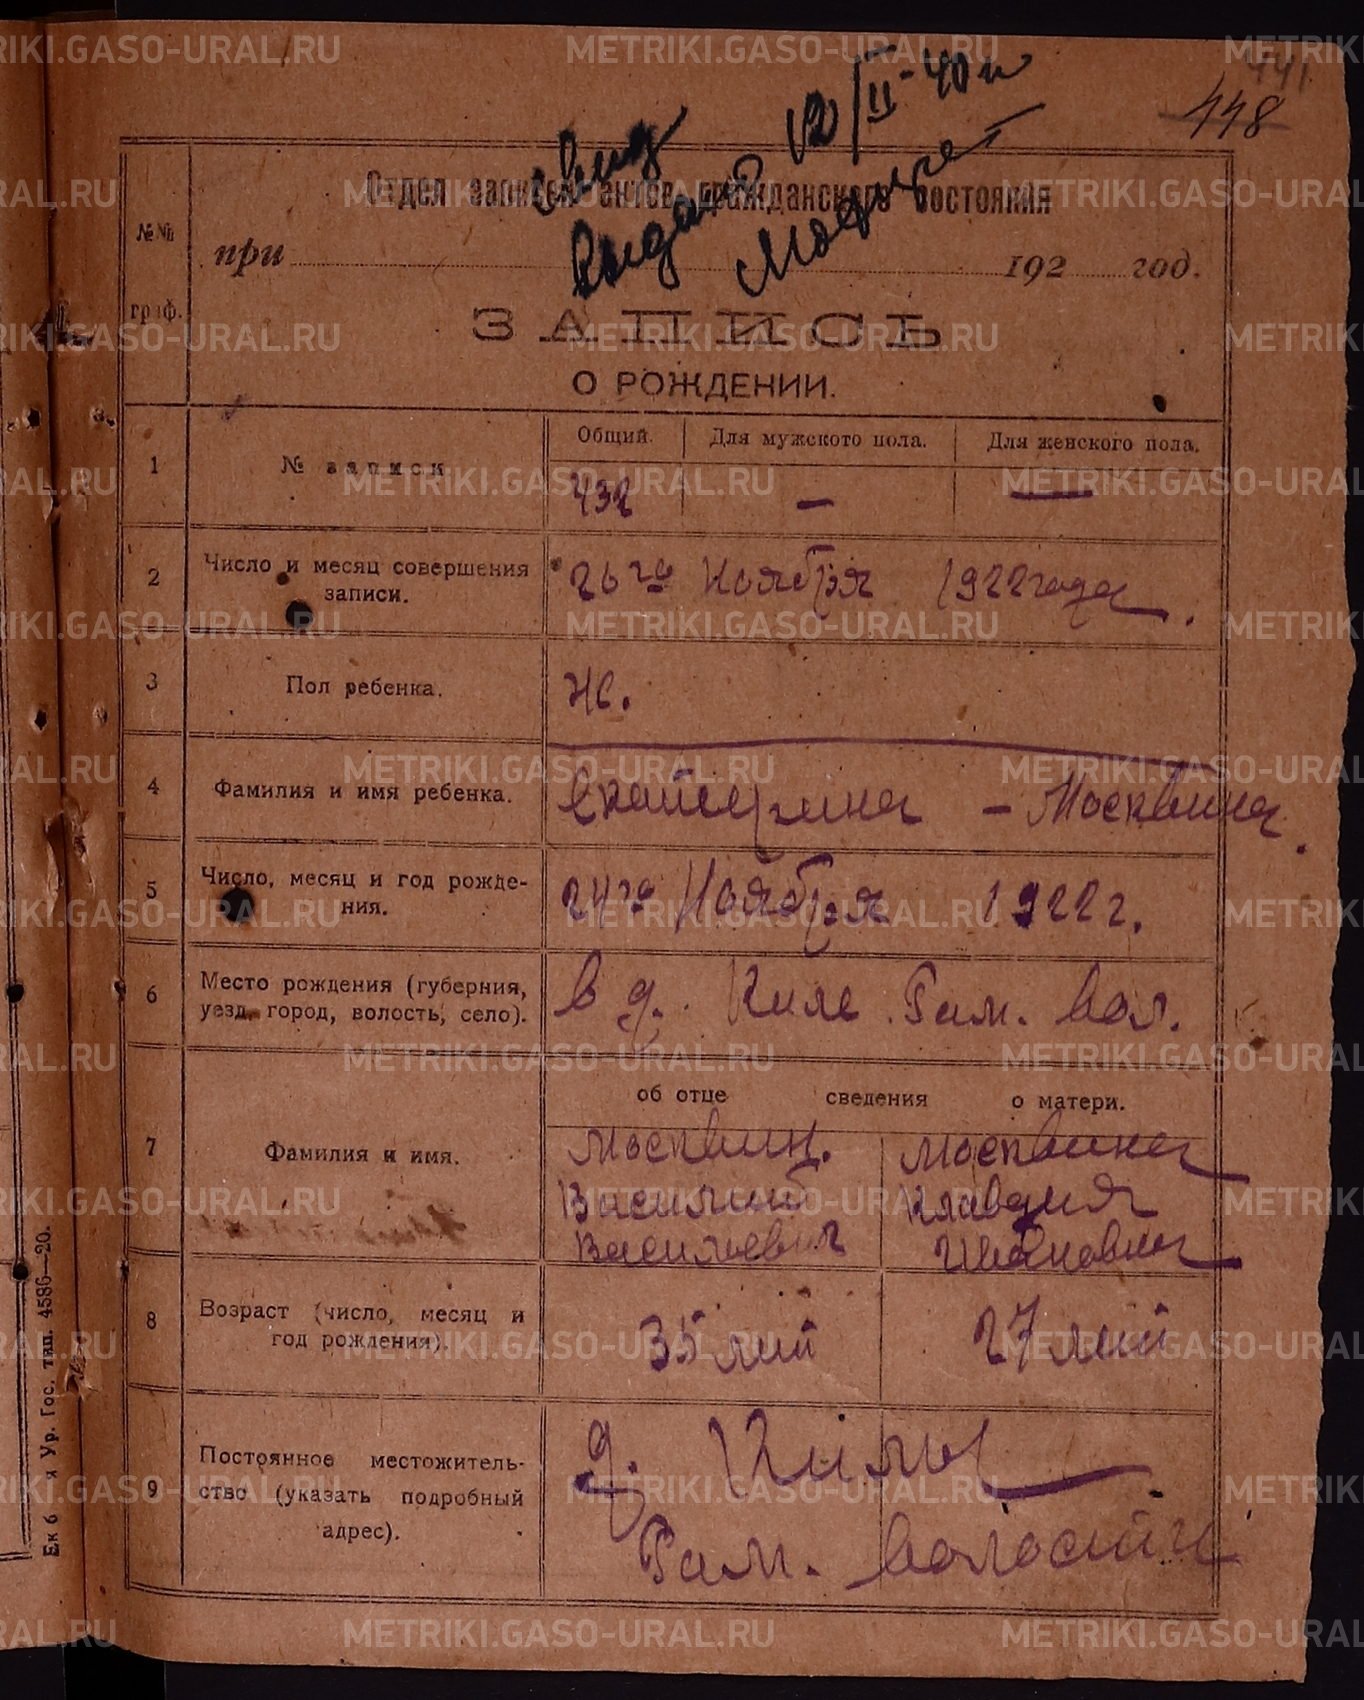 441
448
Свид
выдано 12/II-40 г
Отдел записей актов гражданского состояния
№№ граф.
при 192 год.
ЗАПИСЬ
О РОЖДЕНИИ.
1 № записи Общий. Для мужского пола. Для женского пола.
432 — —
2 Число и месяц совершения записи. 26го Ноября 1922 года.
3 Пол ребенка. Ж.
4 Фамилия и имя ребенка. Екатерина – Москвина.
5 Число, месяц и год рождения. 24го Ноября 1922 г.
6 Место рождения (губерния, уезд, город, волость, село). В д. Киле Рам. вол.
об отце сведения о матери.
7 Фамилия и имя. Москвин. Москвина
Василий Клавдия
Васильевич Ивановна
8 Возраст (число, месяц и год рождения). 35 лет 27 лет
9 Постоянное местожительство (указать подробный адрес). д. Килы
Рам. волости
Екб я Ур. Гос. тип. 4586—20.
METRIKI.GASO-URAL.RU